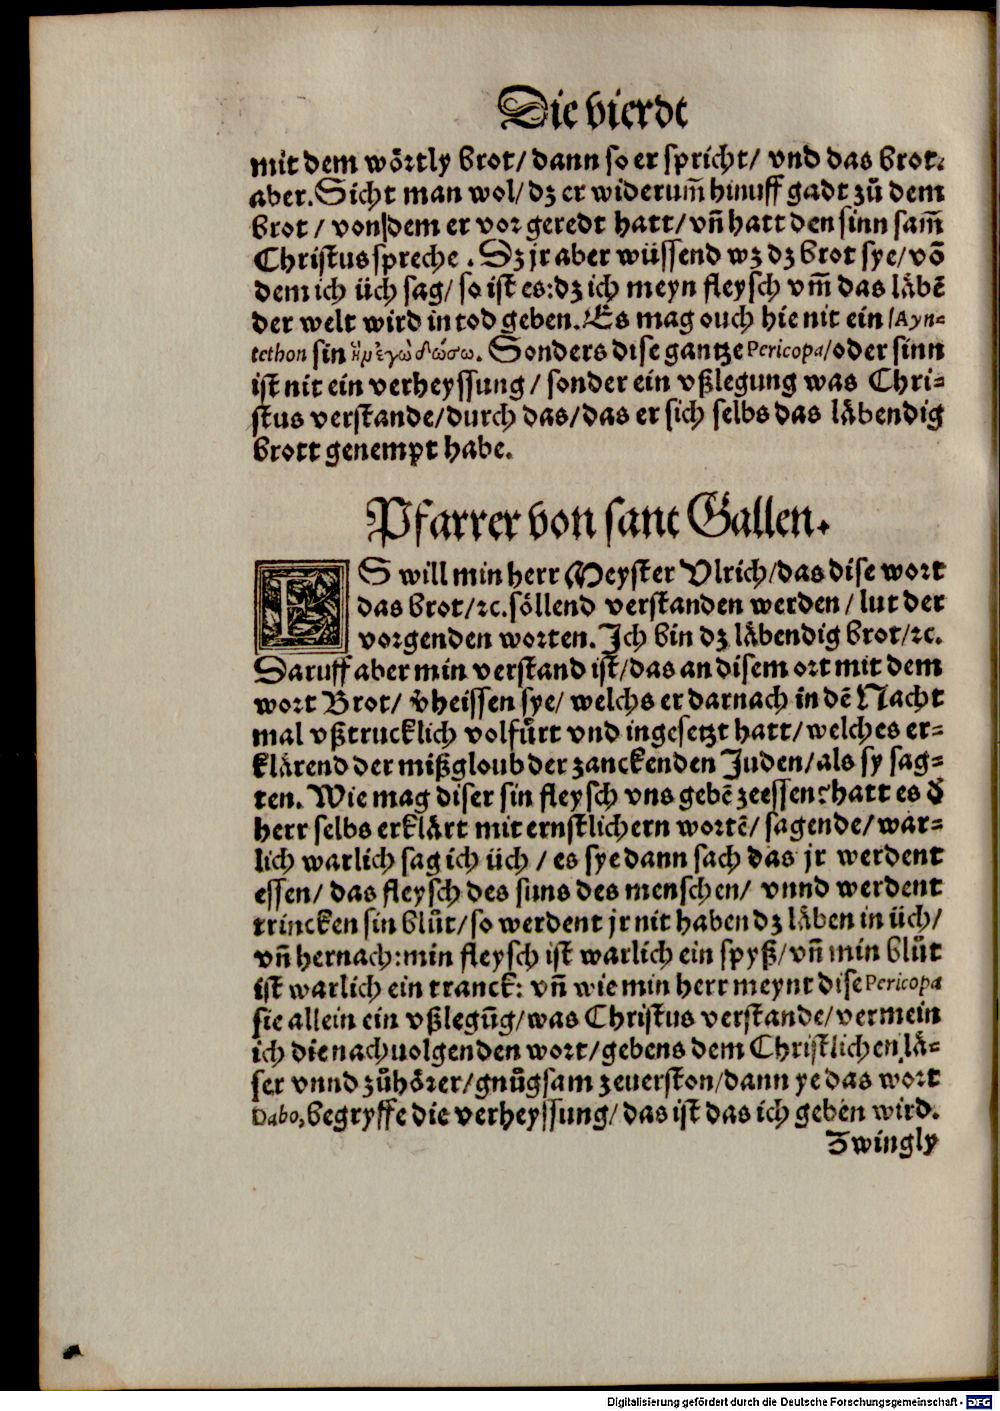 Die vierdt
mit dem wörtly brot/ dann so er spricht/ vnd das brot.
aber. Sicht man wol/ dz er widerum̄ hinuff gadt zů dem
brot / von dem er vor geredt hatt/ vn̄ hatt den sinn sam̄
Christus spreche . Dz jr aber wüssend wz dz brot sye/ vō
dem ich üch sag/ so ist es: dz ich meyn fleysch vm̄ das läbē
der welt wird in tod geben. Es mag ouch hie nit ein /Ayn-
tethon sin ἣν ἐγὼ δώσω. Sonders dise gantze Pericopa/ oder sinn
ist nit ein verheyssung / sonder ein vßlegung was Chri-
stus verstande/ durch das/ das er sich selbs das läbendig
brott genempt habe.
Pfarrer von sant Gallen.
ES will min herr Meyster Vlrich/ das dise wort
das brot/ ꝛc. söllend verstanden werden / lut der
vorgenden worten. Ich bin dz läbendig brot/ ꝛc.
Daruff aber min verstand ist/ das an disem ort mit dem
wort Brot/ v̄heissen sye/ welchs er darnach in dē Nacht
mal vßtrucklich volfůrt vnd ingesetzt hatt/ welches er-
klärend der mißgloub der zanckenden Juden/ als sy sag-
ten. Wie mag diser sin fleysch vns gebē zeessen? hatt es d̄
herr selbs erklärt mit ernstlichern wortē/ sagende/ war-
lich warlich sag ich üch / es sye dann sach das jr werdent
essen/ das fleysch des suns des menschen/ vnnd werdent
trincken sin blůt/ so werdent jr nit haben dz läben in üch/
vn̄ hernach: min fleysch ist warlich ein spyß/ vn̄ min blůt
ist warlich ein tranck: vn̄ wie min herr meynt dise Pericopa
sie allein ein vßlegūg/ was Christus verstande/ vermein
ich die nachuolgenden wort/ gebens dem Christlichen lä-
ser vnnd zůhörer/ gnůgsam zeuerston/ dann ye das wort
Dabo, begryffe die verheyssung/ das ist das ich geben wird.
Zwingly
Digitalisierung gefördert durch die Deutsche Forschungsgemeinschaft - DFG